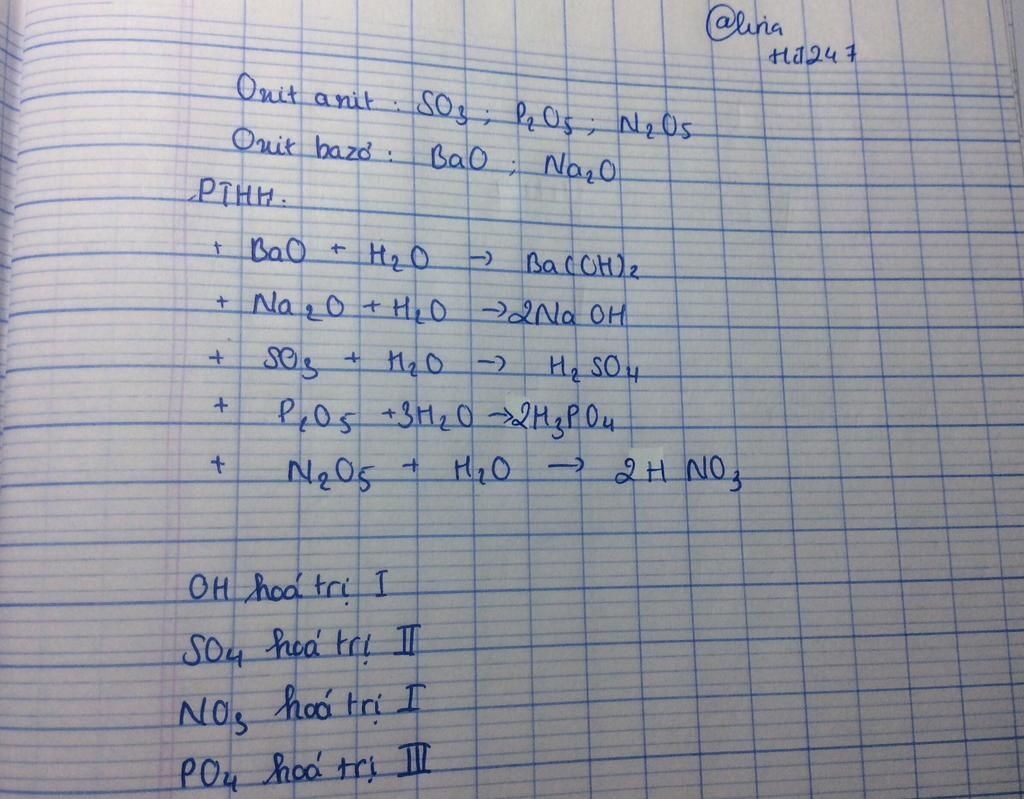 @lina
HI247
Oxit axit : SO3 ; P2O5 ; N2O5
Oxit bazơ : BaO ; Na2O
PTHH.
+ BaO + H2O → Ba(OH)2
+ Na2O + H2O → 2NaOH
+ SO3 + H2O → H2SO4
+ P2O5 + 3H2O → 2H3PO4
+ N2O5 + H2O → 2HNO3
OH hoá trị I
SO4 hoá trị II
NO3 hoá trị I
PO4 hoá trị III